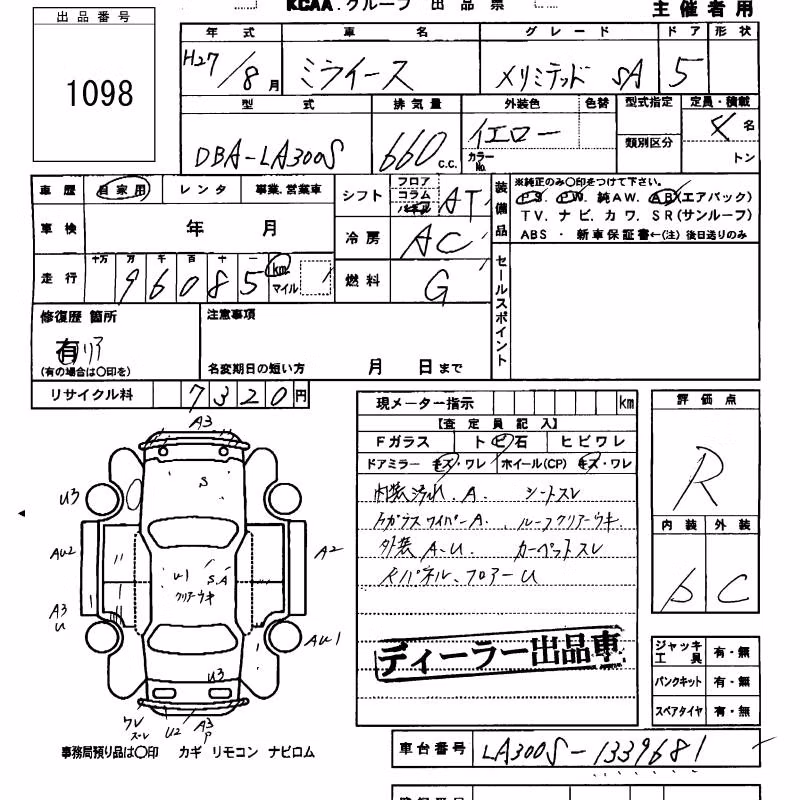 KCAA.グループ 出品票 主催者用
出品番号
1098
年式 車名 グレード ドア 形状
H27/8月 ミライース メリミテッド SA 5
型式 排気量 外装色 色替 型式指定 定員・積載
DBA-LA300S 660 c.c. イエロー カラーNo. 類別区分 4名 トン
車歴 自家用 レンタ 事業.営業車
車検 年 月
走行 十万 万 千 百 十 一 km マイル
96085
シフト フロア コラム パネル AT
冷房 AC
燃料 G
装備品
※純正のみ〇印をつけて下さい。
PS. PW. 純AW. AB(エアバック)
TV. ナビ. カワ. SR(サンルーフ)
ABS ・ 新車保証書←(注) 後日送りのみ
セールスポイント
修復歴 箇所
有 リア
(有の場合は〇印を)
注意事項
名変期日の短い方 月 日まで
リサイクル料 7320円
現メーター指示 km
【査定員記入】
Fガラス トビ石 ヒビワレ
ドアミラー キズ・ワレ ホイール(CP) キズ・ワレ
内装汚れ.A. シートスレ
ルーフクリアーウキ.
外装 A.U. カーペットスレ
フロアーU
ディーラー出品車
評価点
R
内装 外装
D C
ジャッキ工具 有・無
パンクキット 有・無
スペアタイヤ 有・無
A3
S
U3
AU2
A2
U1 S.A
クリアーウキ
A3
U
AU1
U3
ワレ
ズレ
U2
A3
P
事務局預り品は〇印 カギ リモコン ナビロム
車台番号 LA300S-1339681